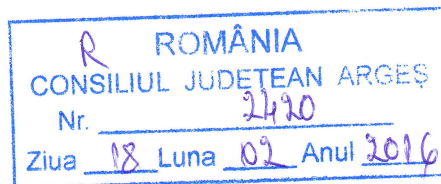 R ROMÂNIA
CONSILIUL JUDEȚEAN ARGEȘ
Nr. 2420
Ziua 18 Luna 02 Anul 2016